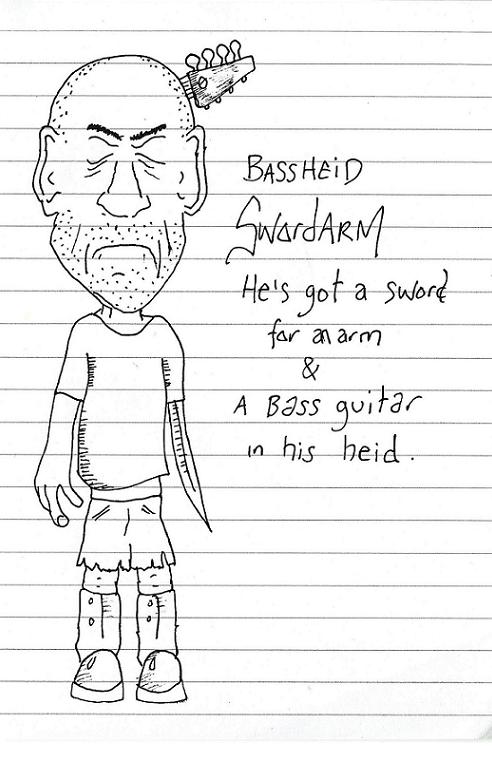 BASSHEiD
SWordARM
He's got a sword
for an arm
&
A BASS guitar
in his heid.